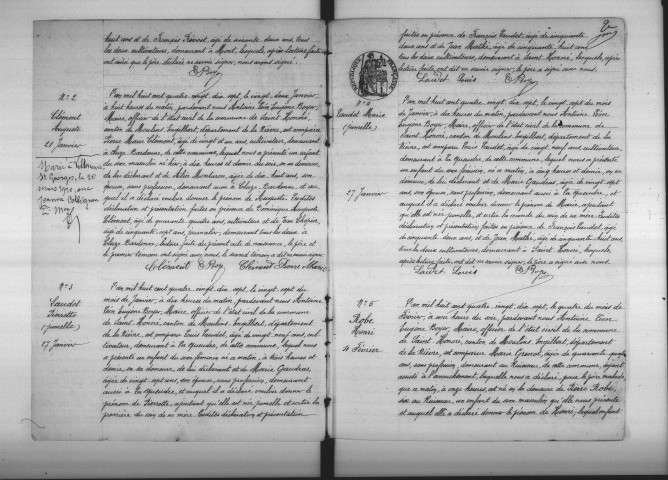 huit ans et de François Prévost, âgé de soixante deux ans, tous
les deux cultivateurs, demeurant à Mont, lesquels, après lecture faite
ont ainsi que le père déclaré ne savoir signer, nous avons signé.
N° 2
Clément
Auguste
21 Janvier
Marié à Villeneuve
St Georges, le 20
mars 1920, avec
Jeanne
L'an mil huit cent quatre vingt dix sept, le vingt deux Janvier
à huit heures du matin, pardevant nous Antoine Léon Eugène Boyer,
Maire, officier de l'état civil de la commune de Saint Honoré,
canton de Moulins Engilbert, département de la Nièvre, est comparu
Pierre Marie Clément, âgé de vingt d'un ans, cultivateur, demeurant
à commune, lequel nous a présenté un enfant
du sexe masculin né hier, à dix heures et demie du soir, en sa demeure,
de lui déclarant et de âgée de dix huit ans, son
épouse, sans profession, demeurant aussi à et au
quel il a déclaré vouloir donner le prénom de Auguste. Lesdites
déclaration et présentation faites en présence de Dominique Auguste
Clément, âgé de quarante quatre ans, cultivateur et de Jean
âgé de cinquante ans, journalier, demeurant tous les deux à
lecture faite du présent acte de naissance, le père et
le premier témoin ont signé avec nous, le second témoin a dit ne savoir signer.
Clément Clément Pierre Marie
N° 3
Laudet
Pierrette
(jumelle)
27 Janvier
L'an mil huit cent quatre vingt dix sept, le vingt sept du
mois de Janvier, à dix heures du matin, pardevant nous Antoine
Léon Eugène Boyer, Maire, officier de l'état civil de la commune
de Saint Honoré, canton de Moulins Engilbert, département
de la Nièvre, est comparu Louis Laudet, âgé de vingt neuf ans, cul
tivateur, demeurant à de cette commune, lequel nous
a présenté un enfant du sexe féminin né ce matin, à trois heures et
demie, en sa demeure, de lui déclarant et de Marie Gaudras,
âgée de vingt sept ans, son épouse, sans profession, demeurant
aussi à et auquel il a déclaré vouloir donner le
prénom de Pierrette, ajoutant qu'elle est née jumelle et sortie la
première du sein de sa mère. Lesdites déclaration et présentation
2
faites en présence de François Laudet, âgé de cinquante
deux ans et de Jean Mathé, âgé de cinquante huit ans
tous les deux cultivateurs, demeurant à Saint Honoré, lesquels, après
lecture faite, ont dit ne savoir signer, le père a signé avec nous.
Laudet Louis
N° 4
Laudet Marie
(jumelle)
27 Janvier
L'an mil huit cent quatre vingt dix sept, le vingt sept du mois
de Janvier, à dix heures du matin, pardevant nous Antoine Léon
Eugène Boyer, Maire, officier de l'état civil de la commune de
Saint Honoré, canton de Moulins Engilbert, département de la
Nièvre, est comparu Louis Laudet, âgé de vingt neuf ans, cultivateur,
demeurant à de cette commune, lequel nous a présenté
un enfant du sexe féminin né ce matin, à cinq heures, en sa
demeure, de lui déclarant et de Marie Gaudras, âgée de vingt sept
ans, son épouse, sans profession, demeurant aussi à et
auquel il a déclaré vouloir donner le prénom de Marie, ajoutant qu'
elle est née jumelle, et sortie la seconde du sein de sa mère. Lesdites
déclaration et présentation faites en présence de François Laudet, âgé
de cinquante deux ans, et de Jean Mathé, âgé de cinquante huit ans,
tous les deux cultivateurs, demeurant à Saint Honoré, lesquels,
après lecture faite, ont dit ne savoir signer, le père a signé avec nous.
Laudet Louis
N° 5
Robe
Henri
4 Février
L'an mil huit cent quatre vingt dix sept, le quatre du mois de
Février, à une heure du soir, pardevant nous Antoine Léon
Eugène Boyer, Maire, officier de l'état civil de la commune
de Saint Honoré, canton de Moulins Engilbert, département
de la Nièvre, est comparue Marie âgée de quarante
ans, sans profession, demeurant au Ruisseau, de cette commune, ayant
assisté à l'accouchement, laquelle nous a déclaré, pour le père
que ce matin, à onze heures, est né en la demeure de Pierre Robe,
sise au Ruisseau, un enfant du sexe masculin qu'elle nous présente
et auquel elle a déclaré donner le prénom de Henri, lequel enfant